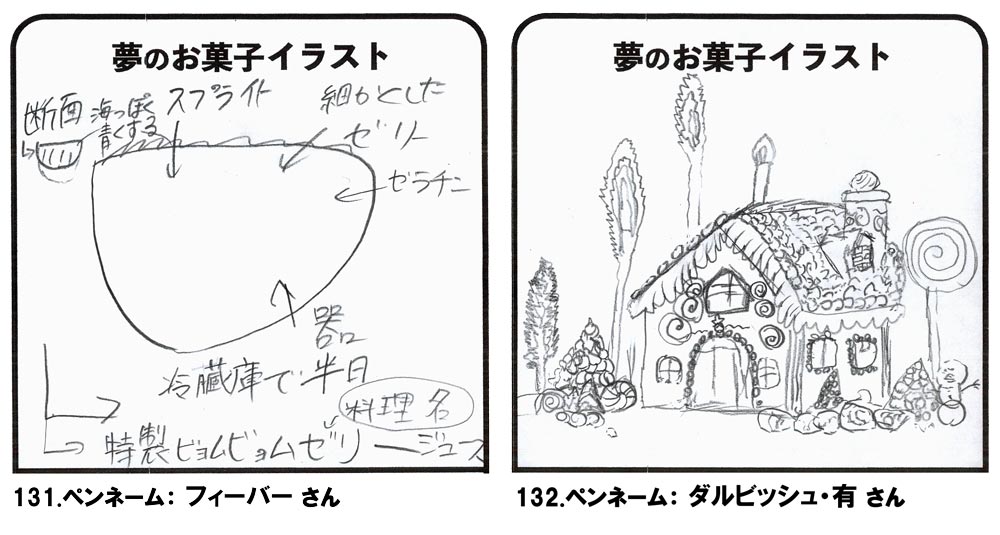 夢のお菓子イラスト
断面
海っぽく
青くする
スプライト
細かとした
ゼリー
ゼラチン
器
冷蔵庫で半日
料理名
特製ビョムビョムゼリージュース
131.ペンネーム: フィーバー さん
夢のお菓子イラスト
132.ペンネーム: ダルビッシュ・有 さん